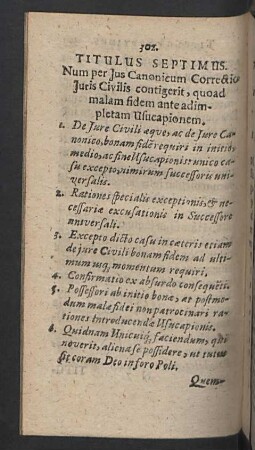 302.
TITULUS SEPTIMUS.
Num per Jus Canonicum Correctio
Juris Civilis contigerit, quoad
malam fidem ante adim-
pletam Usucapionem.
1. De Jure Civili æque, ac de Jure Ca-
nonico, bonam fidẽ requiri in initio,
medio, ac fine Usucapionis: unico ca-
su excepto, nimirum successoris uni-
versalis.
2. Rationes specialis exceptionis, & ne-
cessariæ excusationis in Successore
universali.
3. Excepto dicto casu in cæteris etiam
de jure Civili bonam fidem ad ulti-
mum usq; momentum requiri.
4. Confirmatio ex absurdo consequẽti.
5. Possessori ab initio bonæ, at postmo-
dum malæ fidei non patrocinari ra-
tiones Introducendæ Usucapionis.
6. Quidnam Unicuiq; faciendum, qui
noverit, aliena se possidere, ut tutus
sit coram Deo in foro Poli.
Quem-